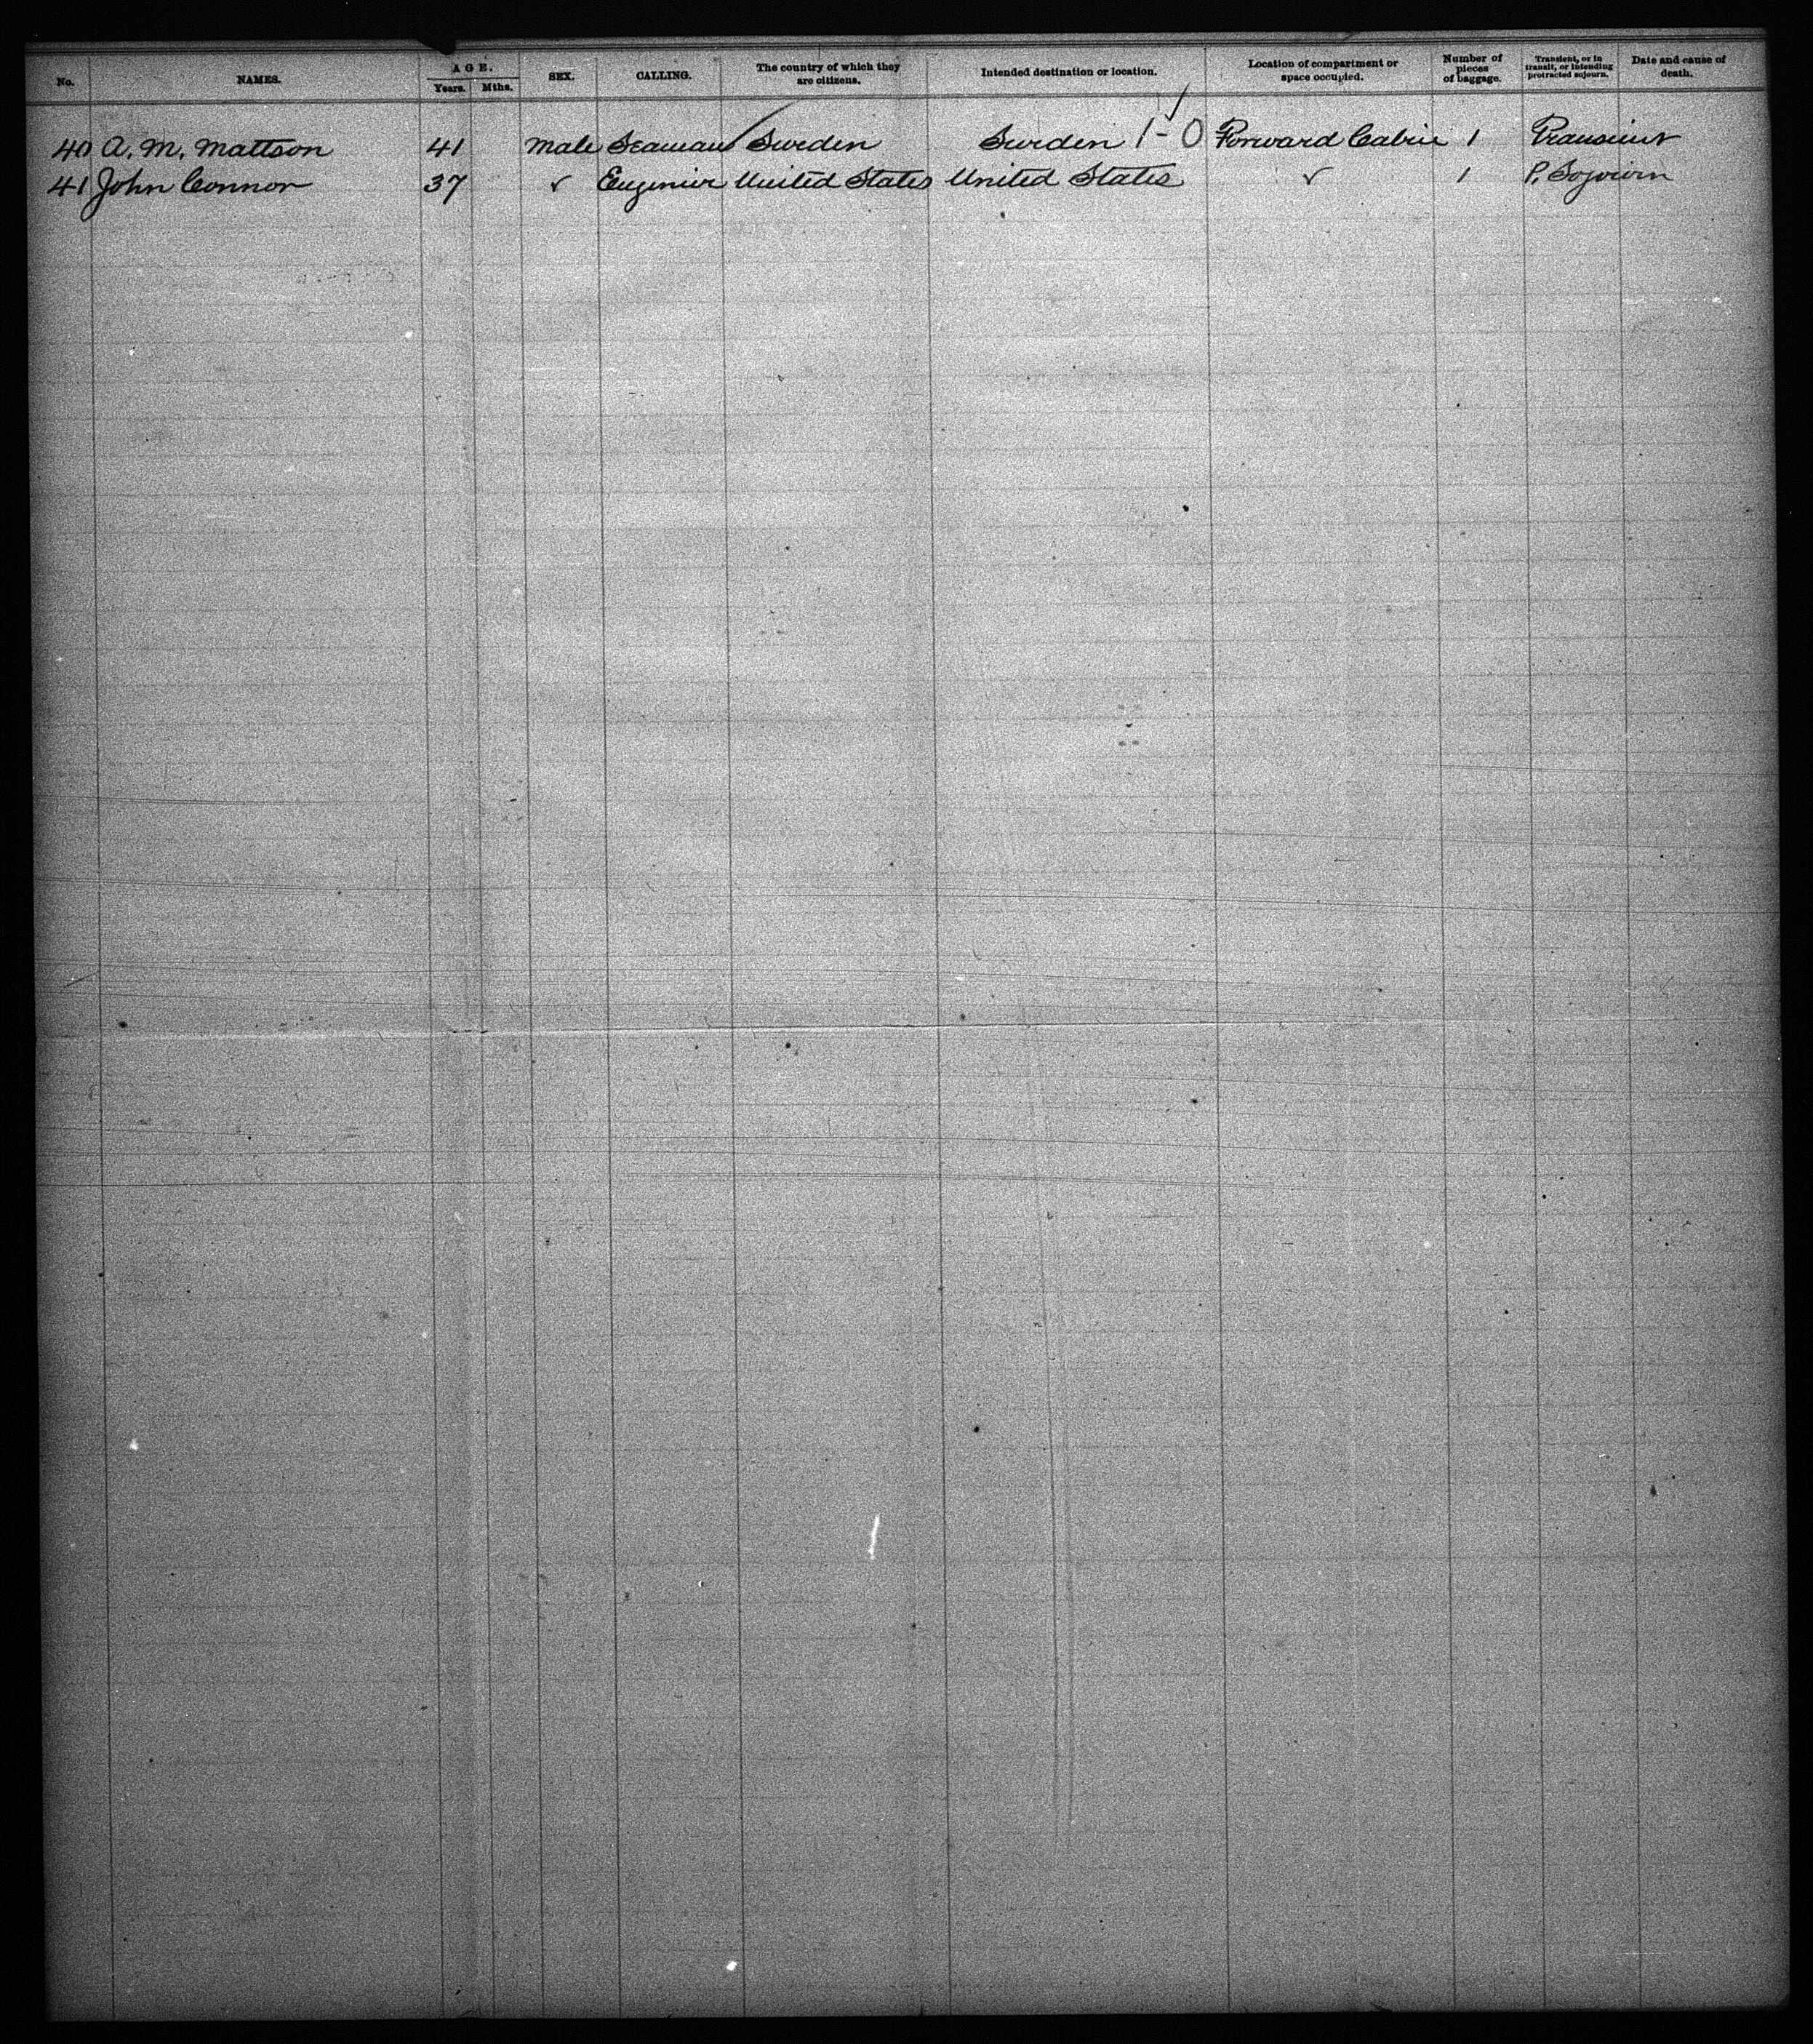 No. NAMES. AGE. Years. Mths. SEX. CALLING. The country of which they are citizens. Intended destination or location. Location of compartment or space occupied. Number of pieces of baggage. Transient, or in transit, or intending protracted sojourn. Date and cause of death.
40 A. M. Mattson 41 Male Seaman Sweden Sweden 1-0 Forward Cabin 1 Transient
41 John Connor 37 ✓ Enginier United States United States ✓ 1 P. Sojourn